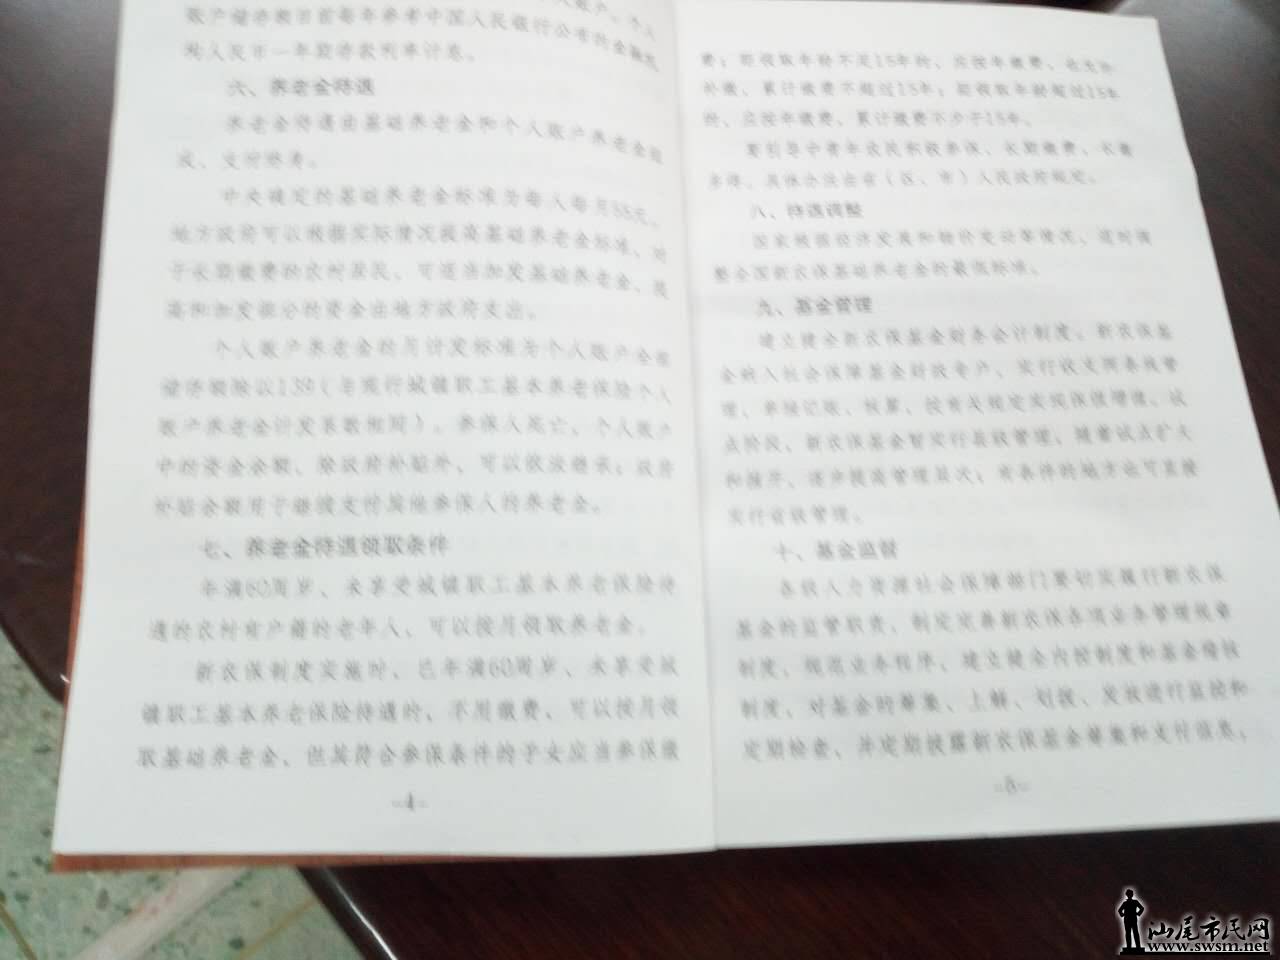 账户储存额目前每年参考中国人民银行公布的金融机
构人民币一年期存款利率计息。
六、养老金待遇
养老金待遇由基础养老金和个人账户养老金组
成，支付终身。
中央确定的基础养老金标准为每人每月55元。
地方政府可以根据实际情况提高基础养老金标准，对
于长期缴费的农村居民，可适当加发基础养老金，提
高和加发部分的资金由地方政府支出。
个人账户养老金的月计发标准为个人账户全部
储存额除以139（与现行城镇职工基本养老保险个人
账户养老金计发系数相同）。参保人死亡，个人账户
中的资金余额，除政府补贴外，可以依法继承；政府
补贴余额用于继续支付其他参保人的养老金。
七、养老金待遇领取条件
年满60周岁、未享受城镇职工基本养老保险待
遇的农村有户籍的老年人，可以按月领取养老金。
新农保制度实施时，已年满60周岁、未享受城
镇职工基本养老保险待遇的，不用缴费，可以按月领
取基础养老金，但其符合参保条件的子女应当参保缴
-4-
费；距领取年龄不足15年的，应按年缴费，也允许
补缴，累计缴费不超过15年；距领取年龄超过15年
的，应按年缴费，累计缴费不少于15年。
要引导中青年农民积极参保、长期缴费，长缴
多得。具体办法由省（区、市）人民政府规定。
八、待遇调整
国家根据经济发展和物价变动等情况，适时调
整全国新农保基础养老金的最低标准。
九、基金管理
建立健全新农保基金财务会计制度。新农保基
金纳入社会保障基金财政专户，实行收支两条线管
理，单独记账、核算，按有关规定实现保值增值。试
点阶段，新农保基金暂实行县级管理，随着试点扩大
和推开，逐步提高管理层次；有条件的地方也可直接
实行省级管理。
十、基金监督
各级人力资源社会保障部门要切实履行新农保
基金的监管职责，制定完善新农保各项业务管理规章
制度，规范业务程序，建立健全内控制度和基金稽核
制度，对基金的筹集、上解、划拨、发放进行监控和
定期检查，并定期披露新农保基金筹集和支付信息，
-5-
汕尾市民网
www.swsm.net